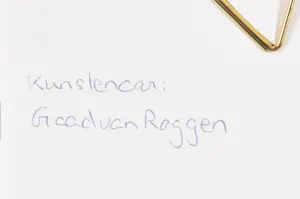 Kunstenaar:
Graad van Roggen